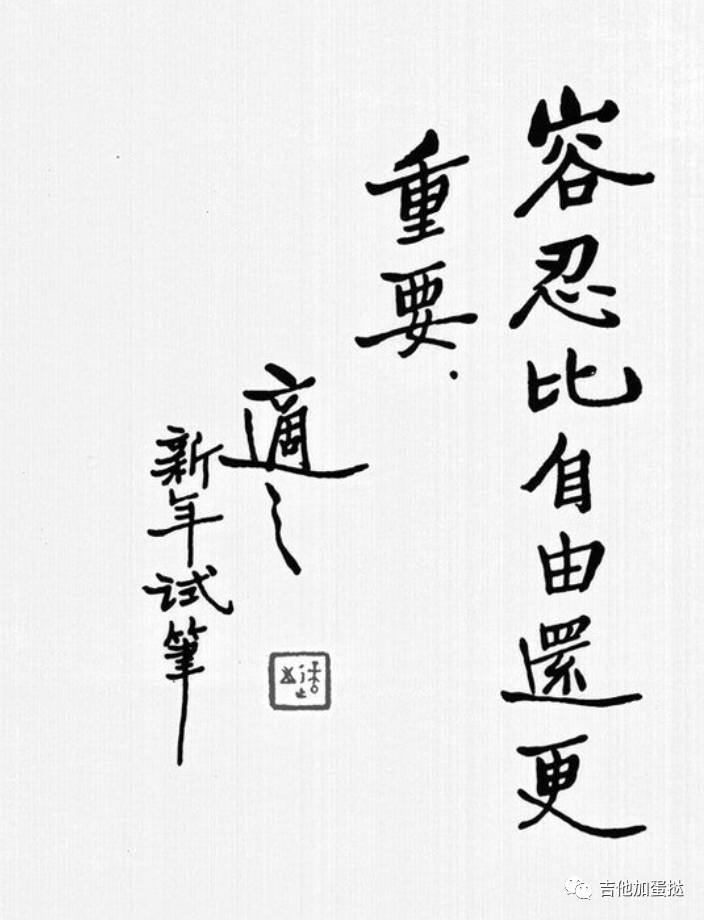 容忍比自由還更
重要.
適之
新年试筆
吉他加蛋挞